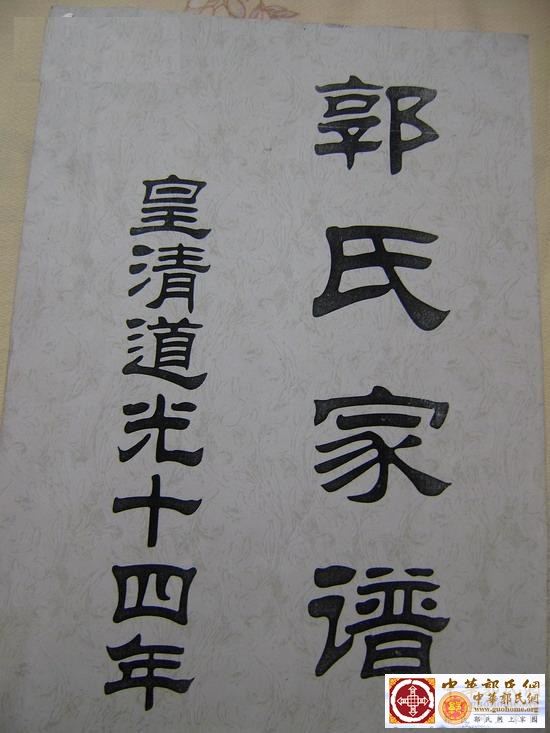 郭氏家谱
皇清道光十四年
中華郭氏網
中華郭氏網
www.guohome.org
郭氏网上家园